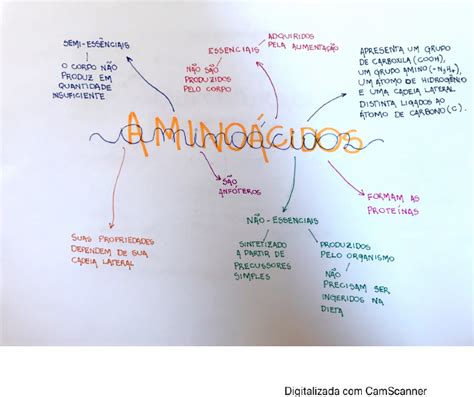 SEMI-ESSÊNCIAIS
O CORPO NÃO
PRODUZ EM
QUANTIDADE
INSUFICIENTE
ESSENCIAIS
ADQUIRIDOS
PELA ALIMENTAÇÃO
NÃO SÃO
PRODUZIDOS
PELO CORPO
APRESENTA UM GRUPO
DE CARBOXILA (COOH),
UM GRUPO AMINO (-NH₂), UM
ÁTOMO DE HIDROGÊNIO
E UMA CADEIA LATERAL
DISTINTA LIGADOS AO
ÁTOMO DE CARBONO (C).
AMINOÁCIDOS
SÃO
ANFÓTEROS
FORMAM AS
PROTEÍNAS
SUAS PROPRIEDADES
DEPENDEM DE SUA
CADEIA LATERAL
NÃO-ESSENCIAIS
SINTETIZADO
A PARTIR DE
PRECUSSORES
SIMPLES
PRODUZIDOS
PELO ORGANISMO
NÃO
PRECISAM SER
INGERIDOS NA
DIETA
Digitalizada com CamScanner